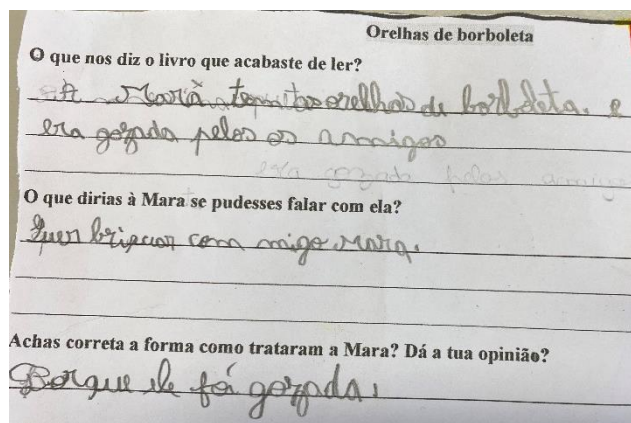 Orelhas de borboleta
O que nos diz o livro que acabaste de ler?
A Mara tem as orelhas de borboleta. e
era gozada pelos os amigos
era gozada pelos amigos
O que dirias à Mara se pudesses falar com ela?
Quer brincar com migo Mara.
Achas correta a forma como trataram a Mara? Dá a tua opinião?
Porque ele foi gozada.